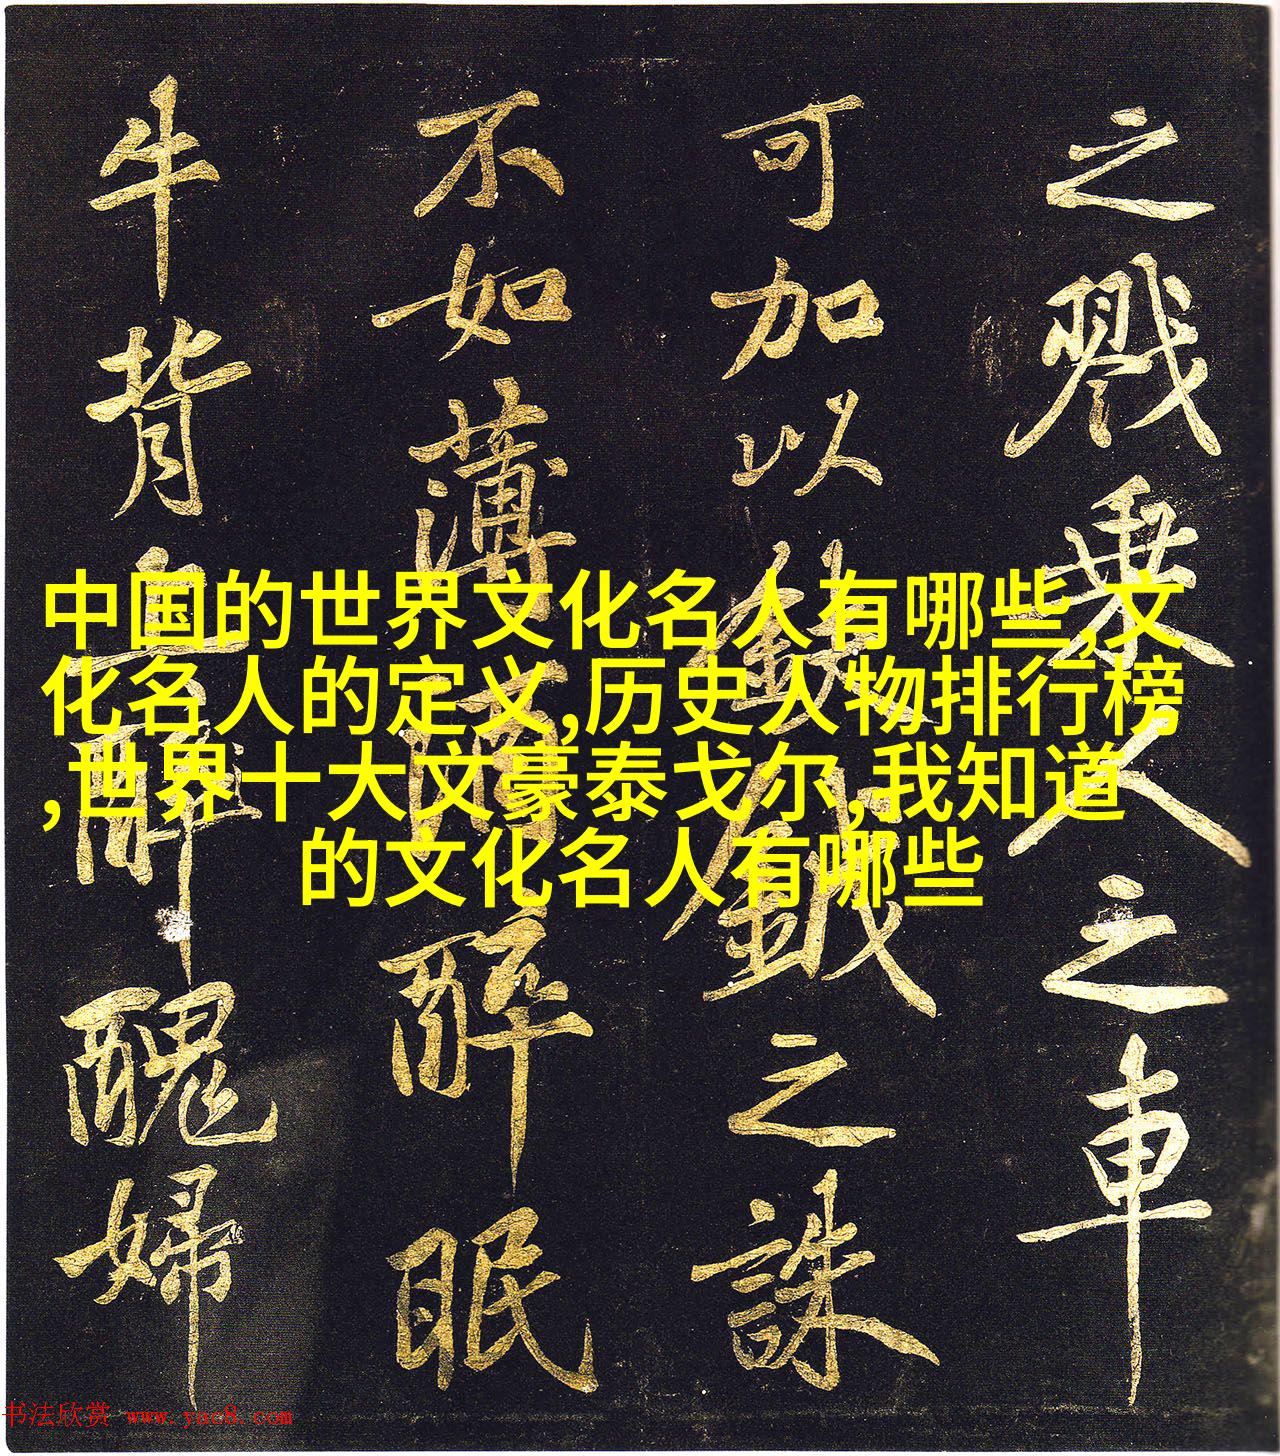 之戮乘人之車
可加以鈇鉞之誅
不如薄酒醉眠
牛背上醜婦
中国的世界文化名人有哪些,文
化名人的定义,历史人物排行榜
,世界十大文豪泰戈尔,我知道
的文化名人有哪些
书法欣赏 www.yac8.com